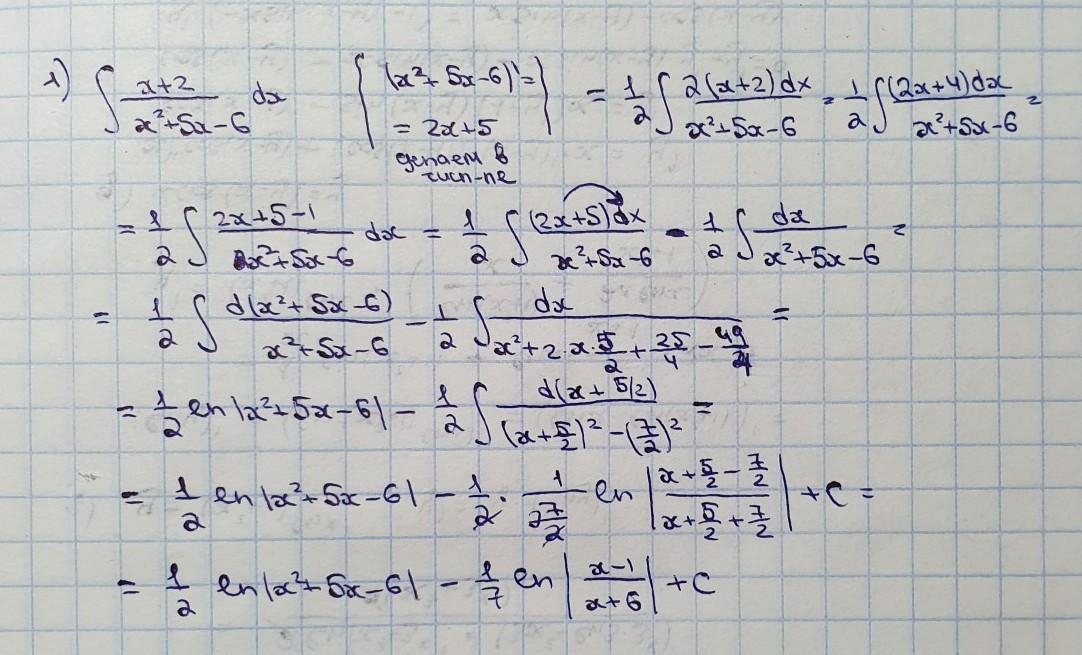 1) ∫ (x+2)/(x²+5x-6) dx { (x²+5x-6)' = = 2x+5 делаем в числ-ле } = 1/2 ∫ 2(x+2)dx/(x²+5x-6) = 1/2 ∫ (2x+4)dx/(x²+5x-6) =
= 1/2 ∫ (2x+5-1)/(x²+5x-6) dx = 1/2 ∫ (2x+5)dx/(x²+5x-6) - 1/2 ∫ dx/(x²+5x-6) =
= 1/2 ∫ d(x²+5x-6)/(x²+5x-6) - 1/2 ∫ dx/(x²+2·x·5/2+25/4-49/4) =
= 1/2 ln|x²+5x-6| - 1/2 ∫ d(x+5/2)/((x+5/2)²-(7/2)²) =
= 1/2 ln|x²+5x-6| - 1/2 · 1/(2 7/2) ln|(x+5/2-7/2)/(x+5/2+7/2)| + C =
= 1/2 ln|x²+5x-6| - 1/7 ln|(x-1)/(x+6)| + C